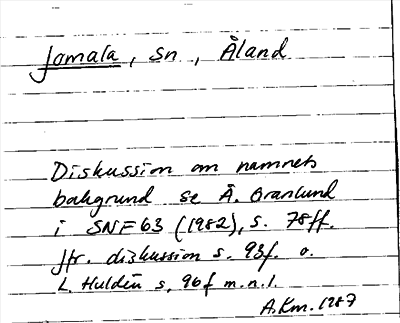 Jomala, sn, Åland
Diskussion om namnets
bakgrund se Å. Granlund
i SNF 63 (1982), s. 78ff.
Jfr. diskussion s. 93f. o.
L. Huldén s. 96f m.n.l.
A.Km. 1987